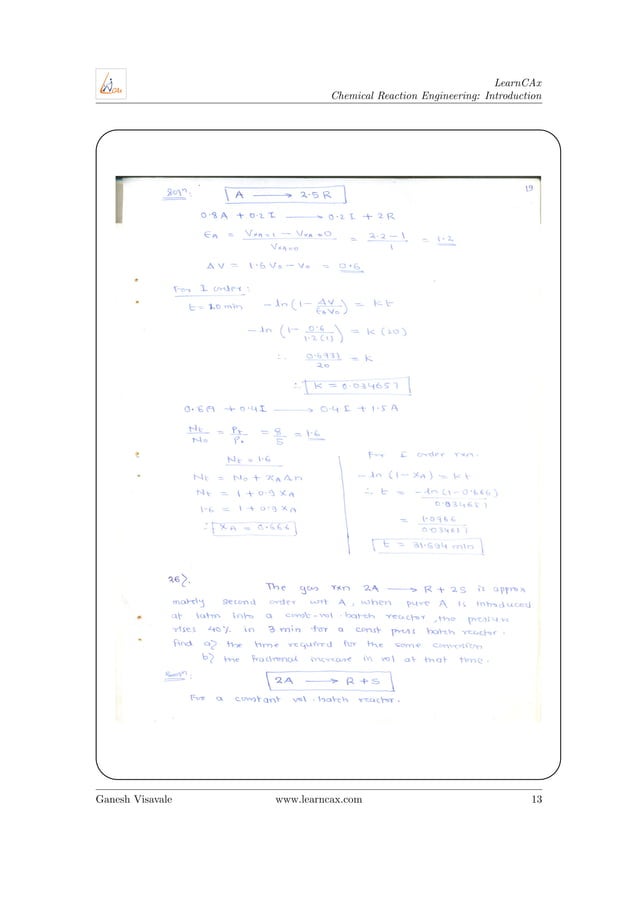 LearnCAx
Chemical Reaction Engineering: Introduction
19
Soln: A → 2.5R
0.8A + 0.2I → 0.2I + 2R
= 2.2 - 1 / 1 = 1.2
ΔV = 1.6V₀ - V₀ = 0.6
For I order:
-ln (1 - ΔV / εₐV₀) = kt
-ln (1 - 0.6 / 1.2(1)) = K (20)
∴ 0.6931 / 20 = K
∴ K = 0.034657
0.6A + 0.4I → 0.4I + 1.5A
Nt / N₀ = Pt / P₀ = 8 / 5 = 1.6
Nt = 1.6
Nt = N₀ + XAΔn
Nt = 1 + 0.9 XA
1.6 = 1 + 0.9 XA
∴ XA = 0.666
For I order rxn.
-ln (1 - XA) = kt
∴ t = -ln (1 - 0.666) / 0.034657
= 1.0966 / 0.034657
t = 31.594 min
26). The gas rxn 2A → R + 2S is approx
mately second order wrt A, when pure A is introduced
at 1atm into a const-vol. batch reactor, the pressure
rises 40% in 3 min for a const press batch reactor.
find a) the time required for the same conversion
b) the fractional increase in vol at that time.
Soln: 2A → R + S
For a constant vol. batch reactor.
Ganesh Visavale www.learncax.com 13